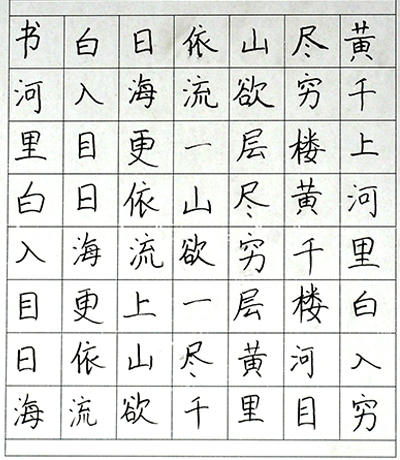 书白日依山尽黄
河入海流欲穷千
里目更一层楼上
白日依山尽黄河
入海流欲穷千里
目更上一层楼白
日依山尽黄河入
海流欲千里目穷